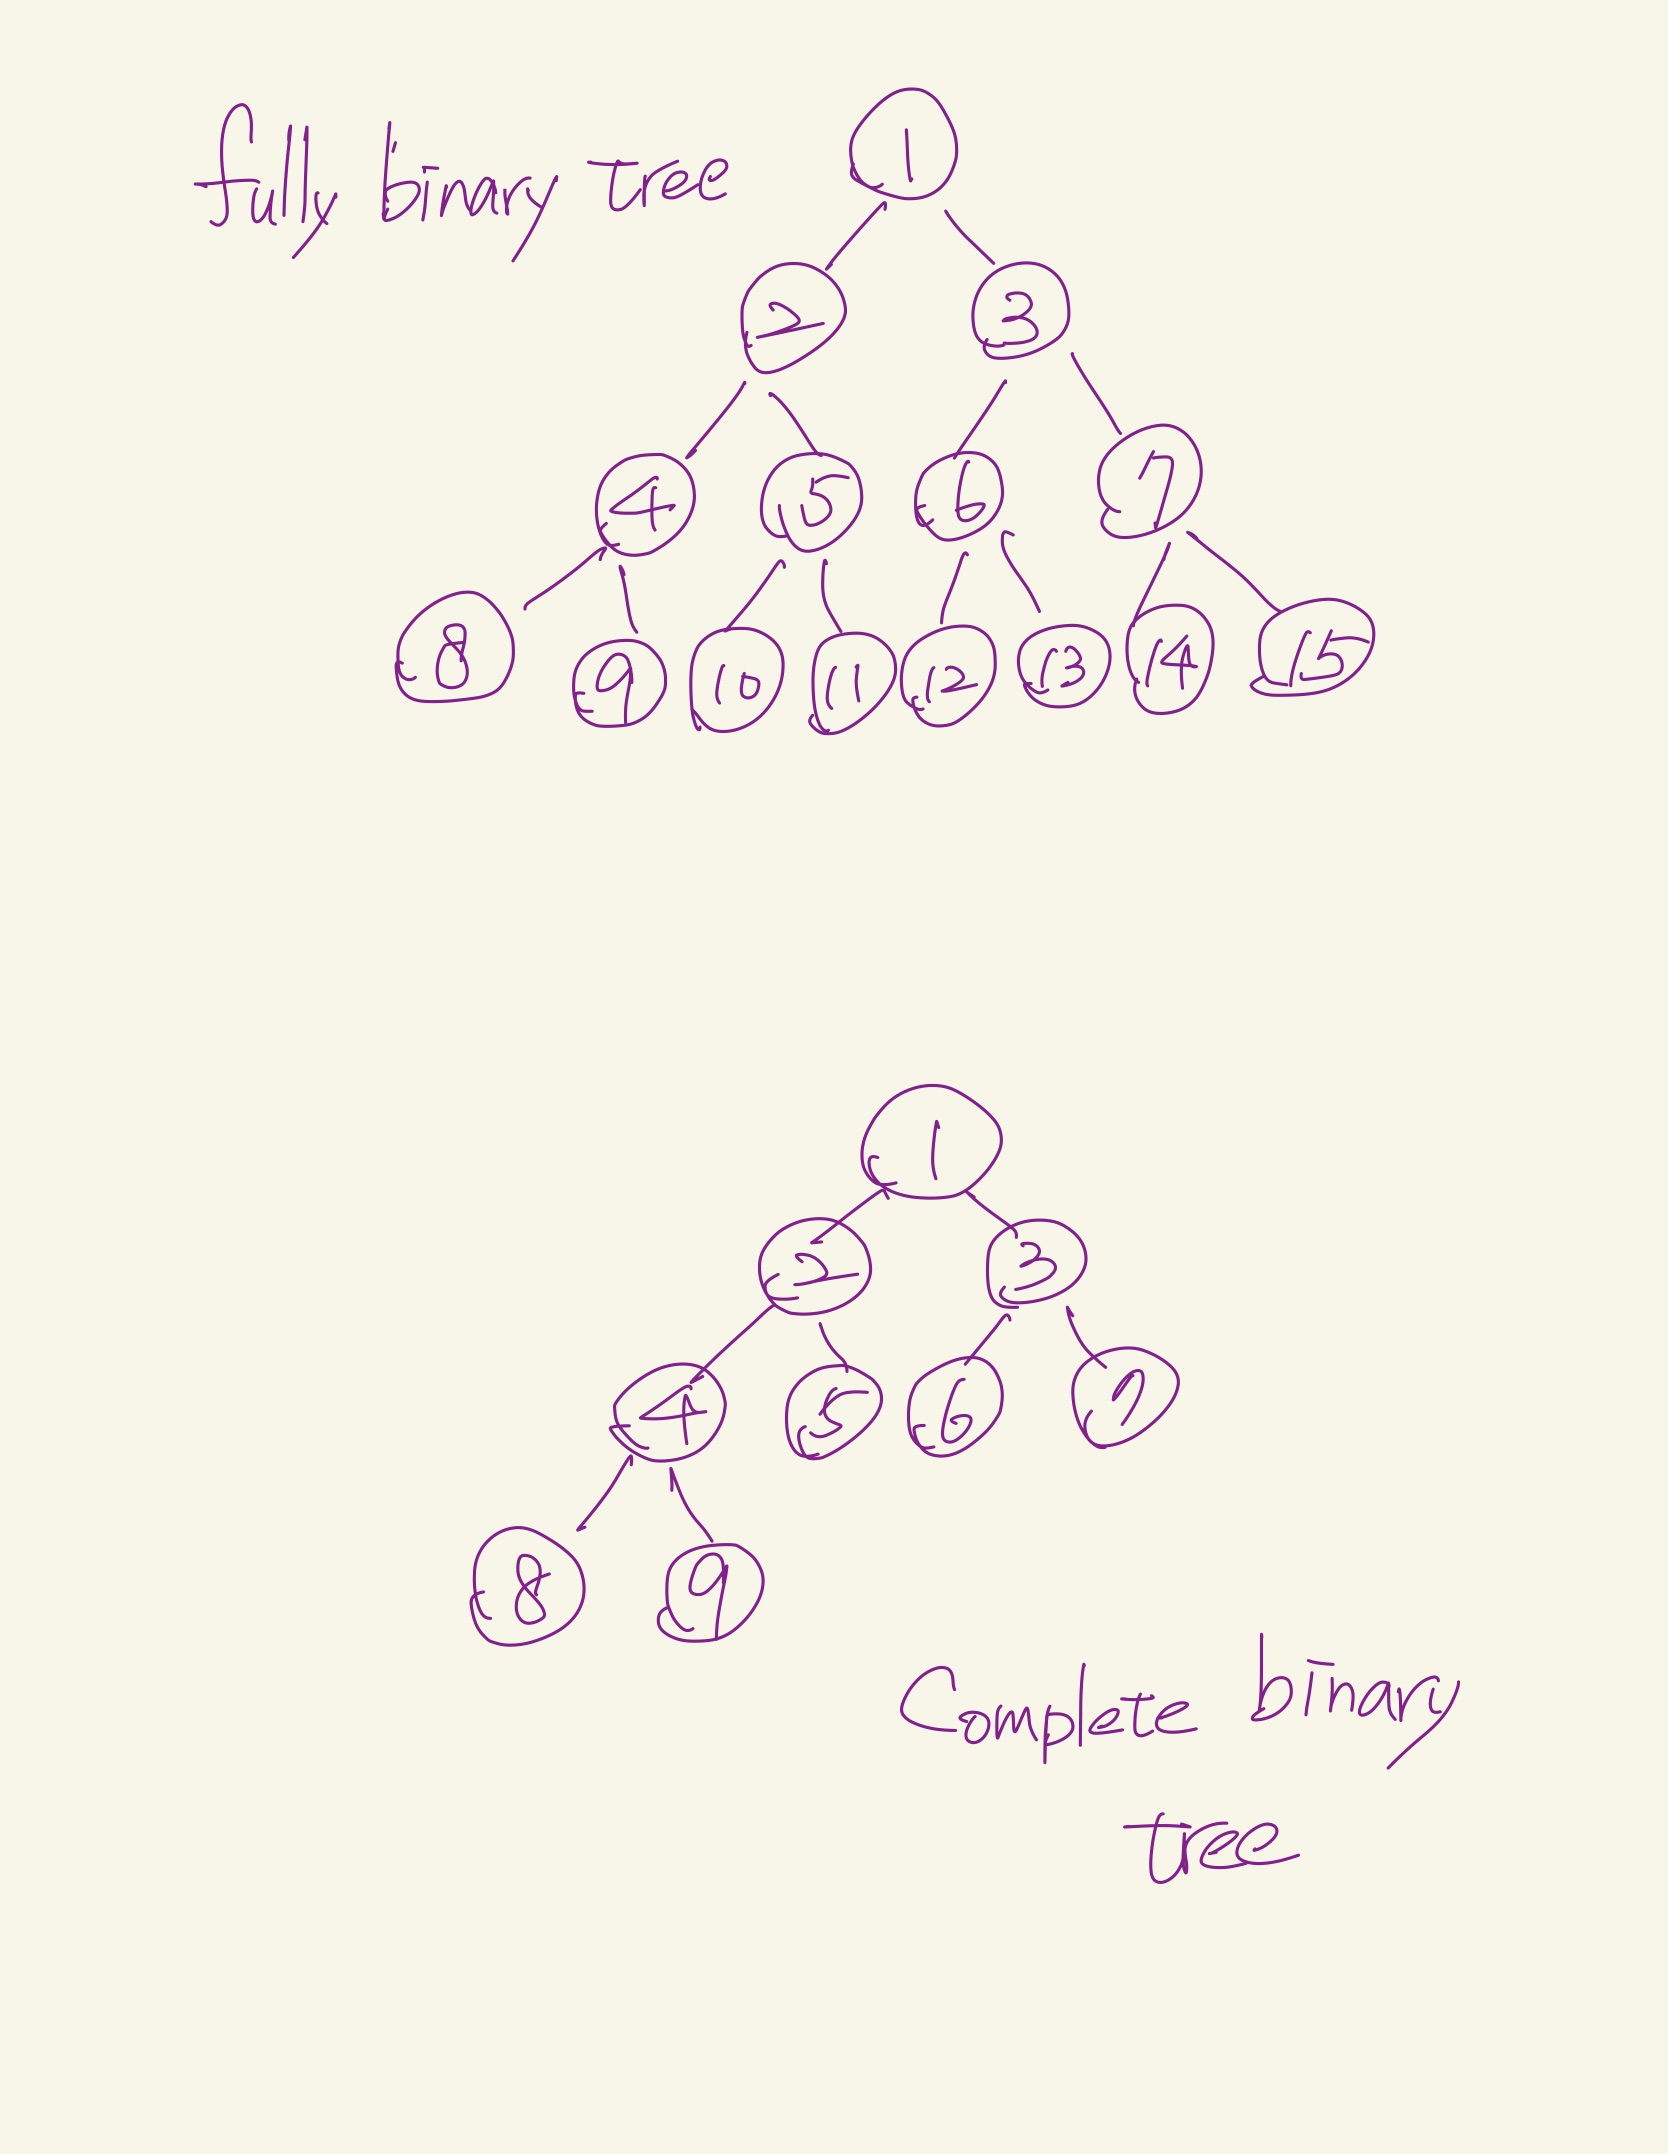 fully binary tree
1
2 3
4 5 6 7
8 9 10 11 12 13 14 15
1
2 3
4 5 6 7
8 9
Complete binary
tree